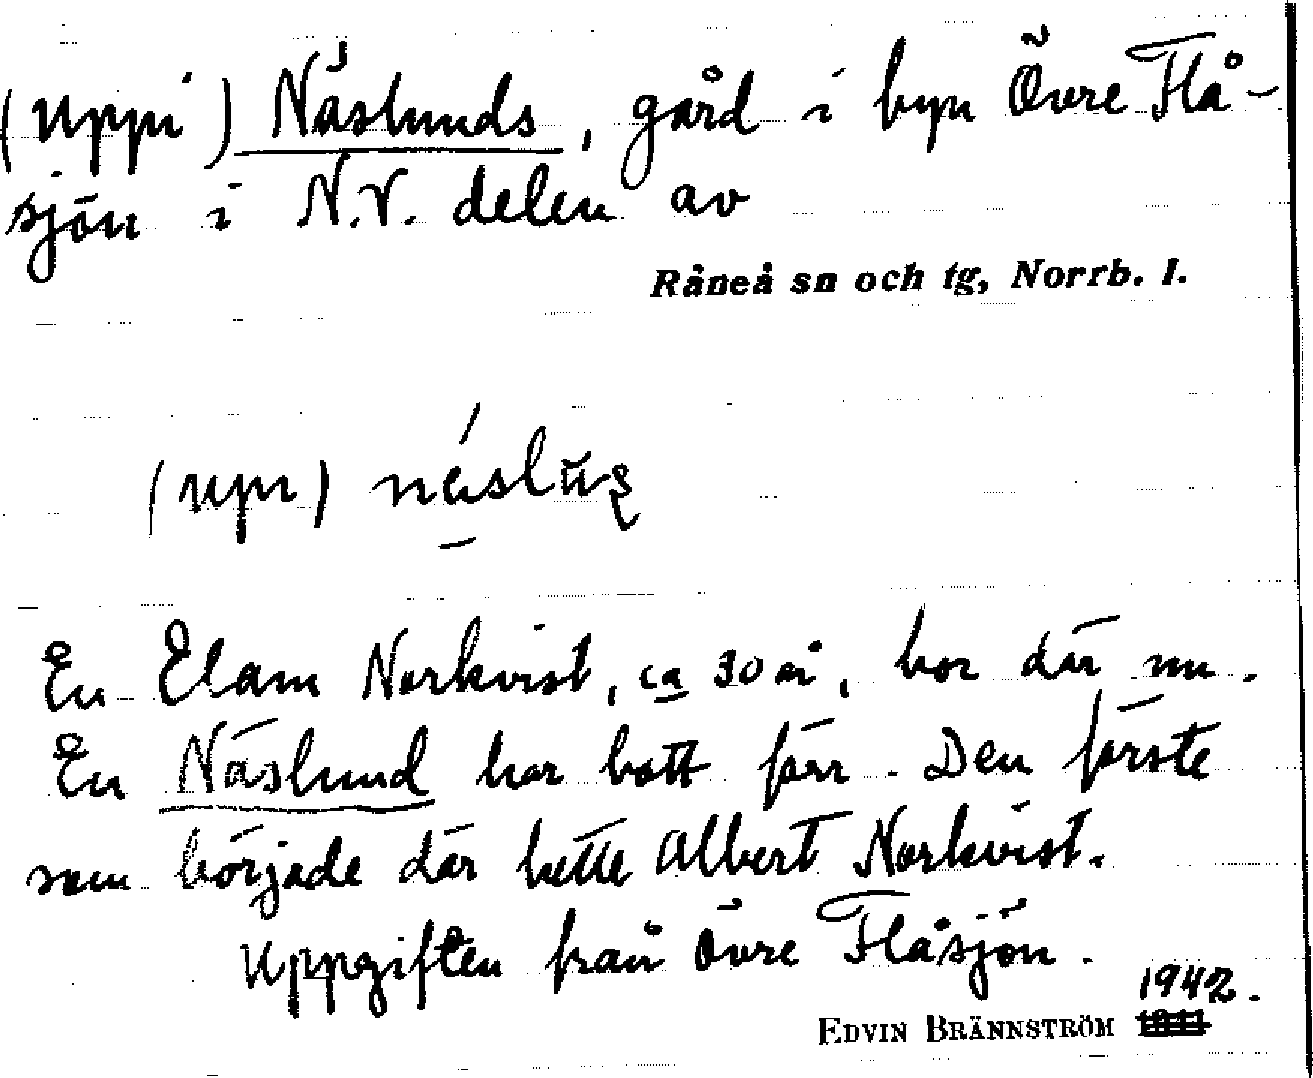 (Uppi) Näslunds, gård i byn Övre Flå-
sjön i N.V. delen av
Råneå sn och tg, Norrb. l.
(upi)
En Elam Norkvist, ca 30 år, bor där nu.
En Näslund har bott förr. Den förste
som började där hette Albert Norkvist.
Uppgiften från Övre Flåsjön.
1942.
EDVIN BRÄNNSTRÖM 1941